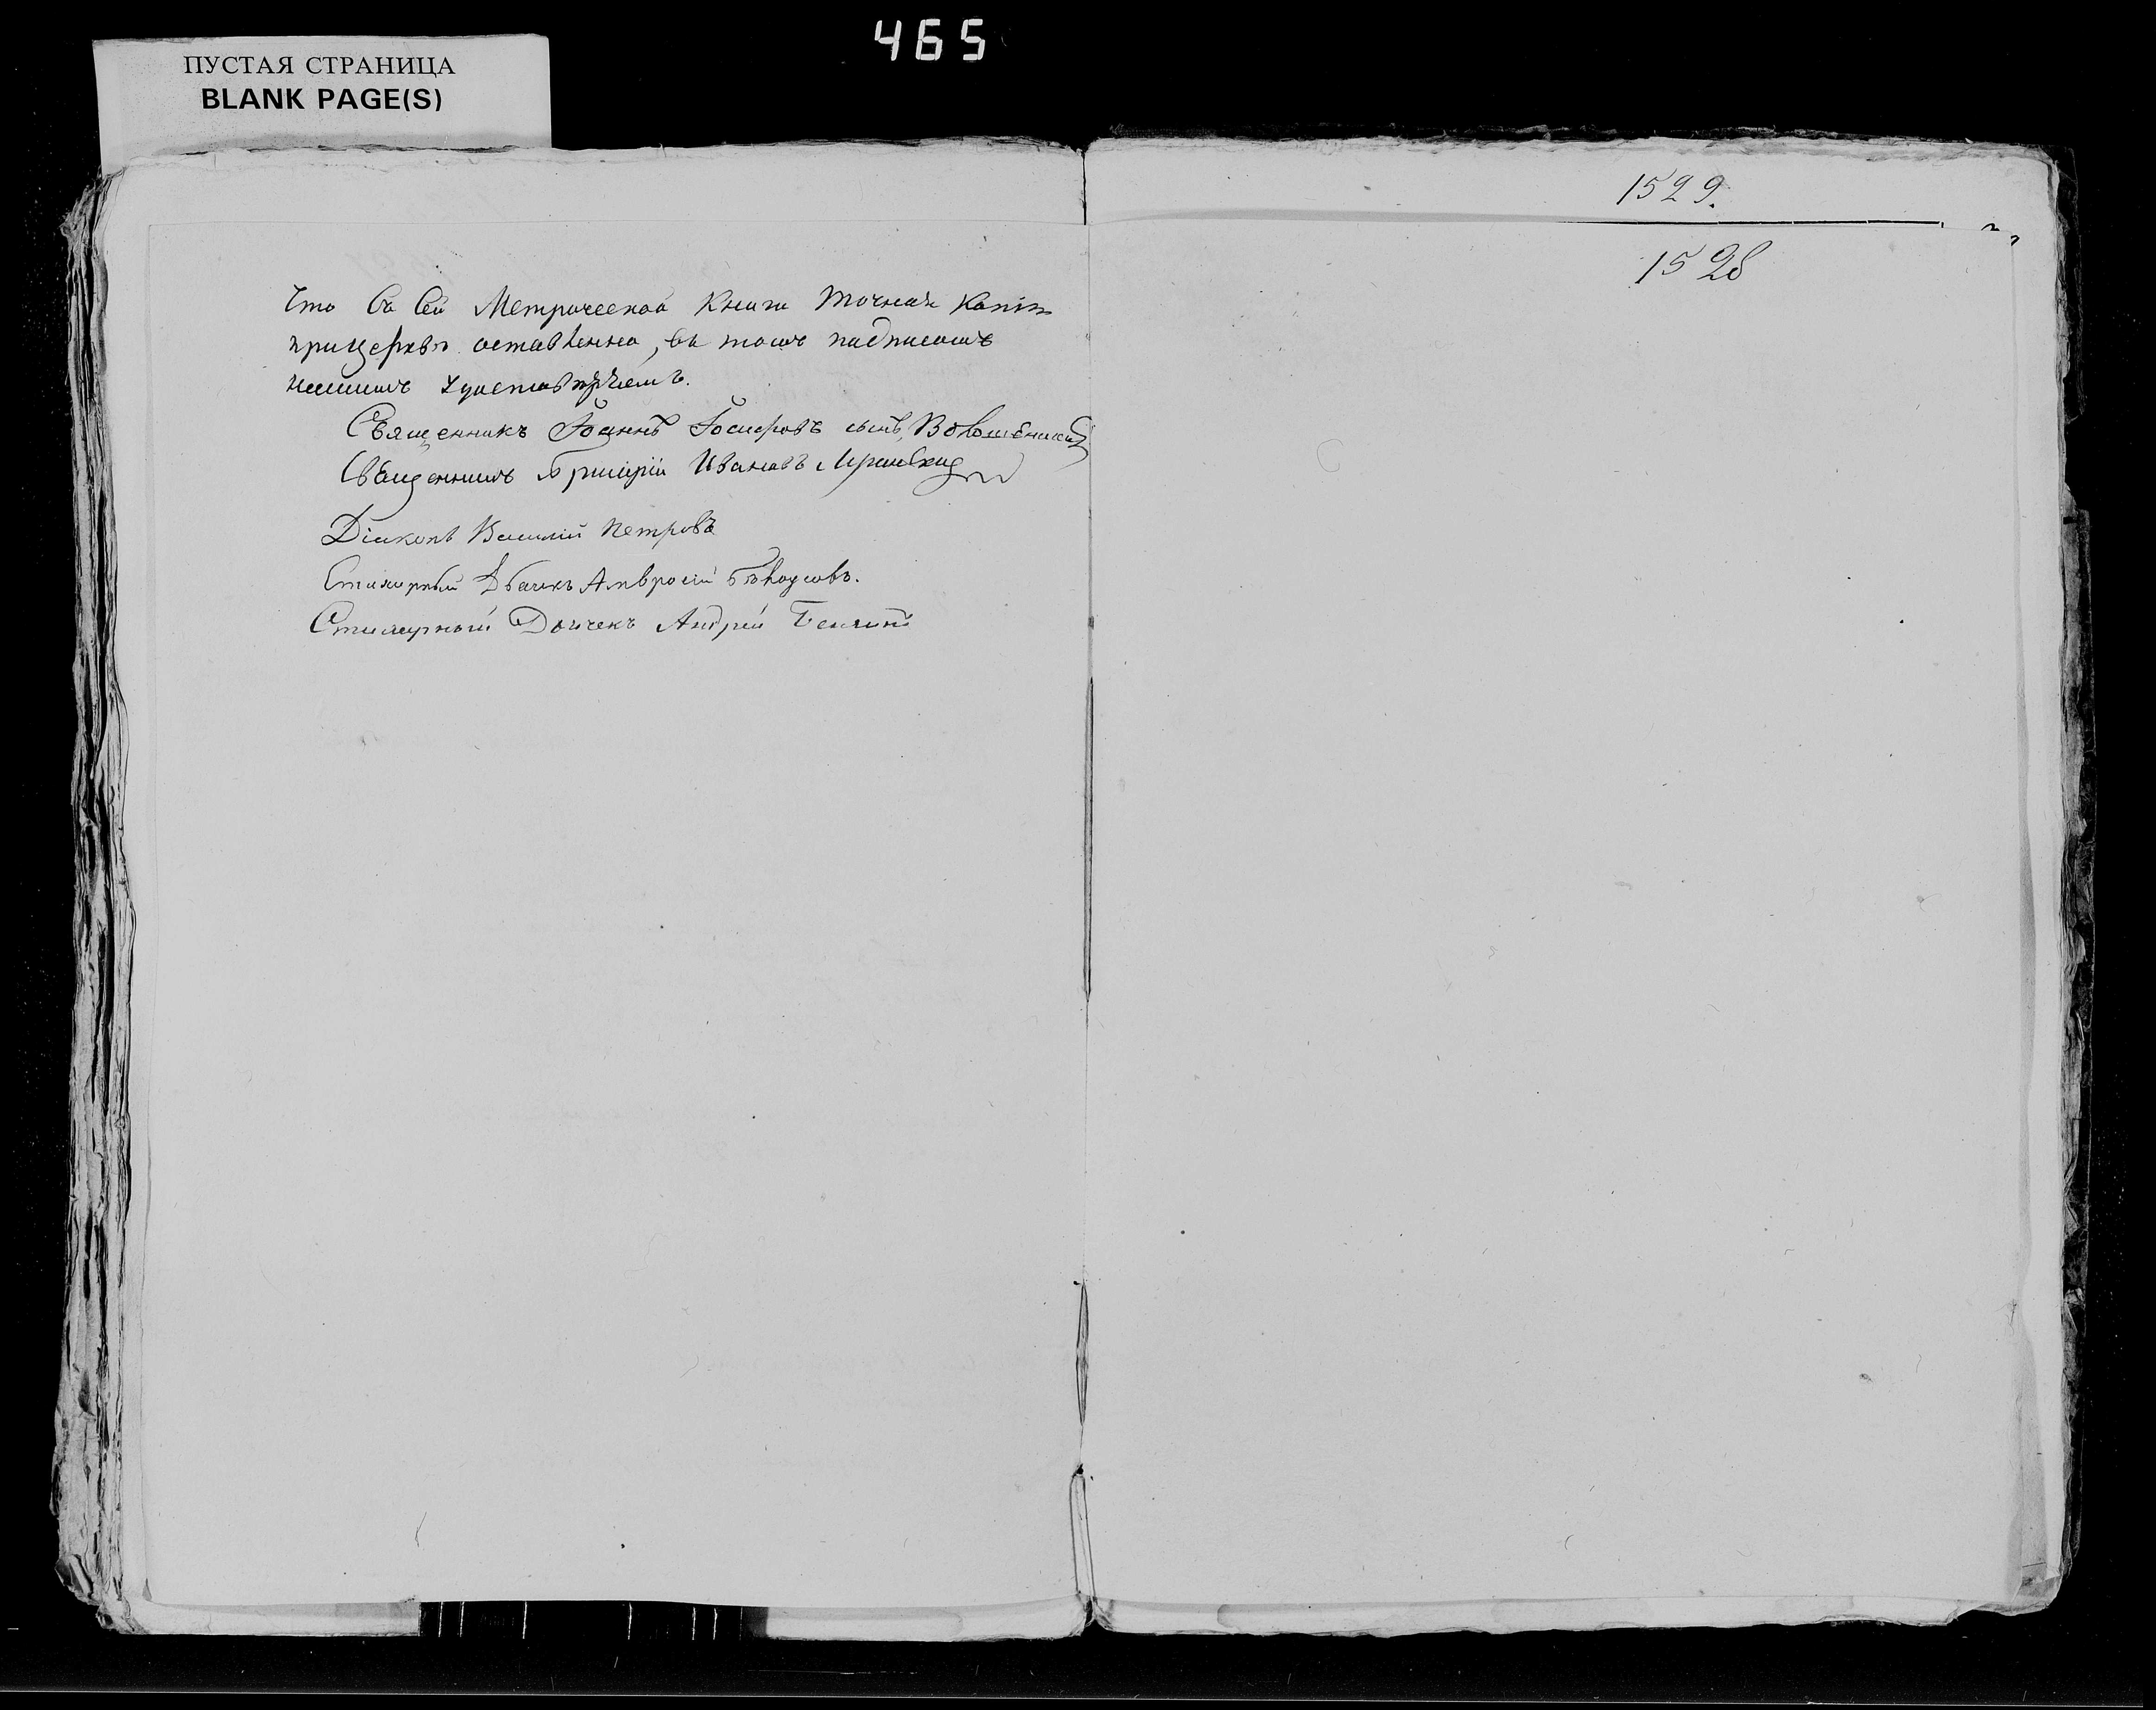 465
ПУСТАЯ СТРАНИЦА
BLANK PAGE(S)
1529.
1528
Что Съ Сей Метрической Книги точная Копія
прицерквѣ оставленна, въ томъ подписомъ
нашимъ
Священникъ Іоаннъ Іосифовъ сынъ
Священникъ Григорій Ивановъ
Діаконъ Василій Петровъ
Стихарный Дьячекъ Амвросій
Стихарный Дьячекъ Андрей